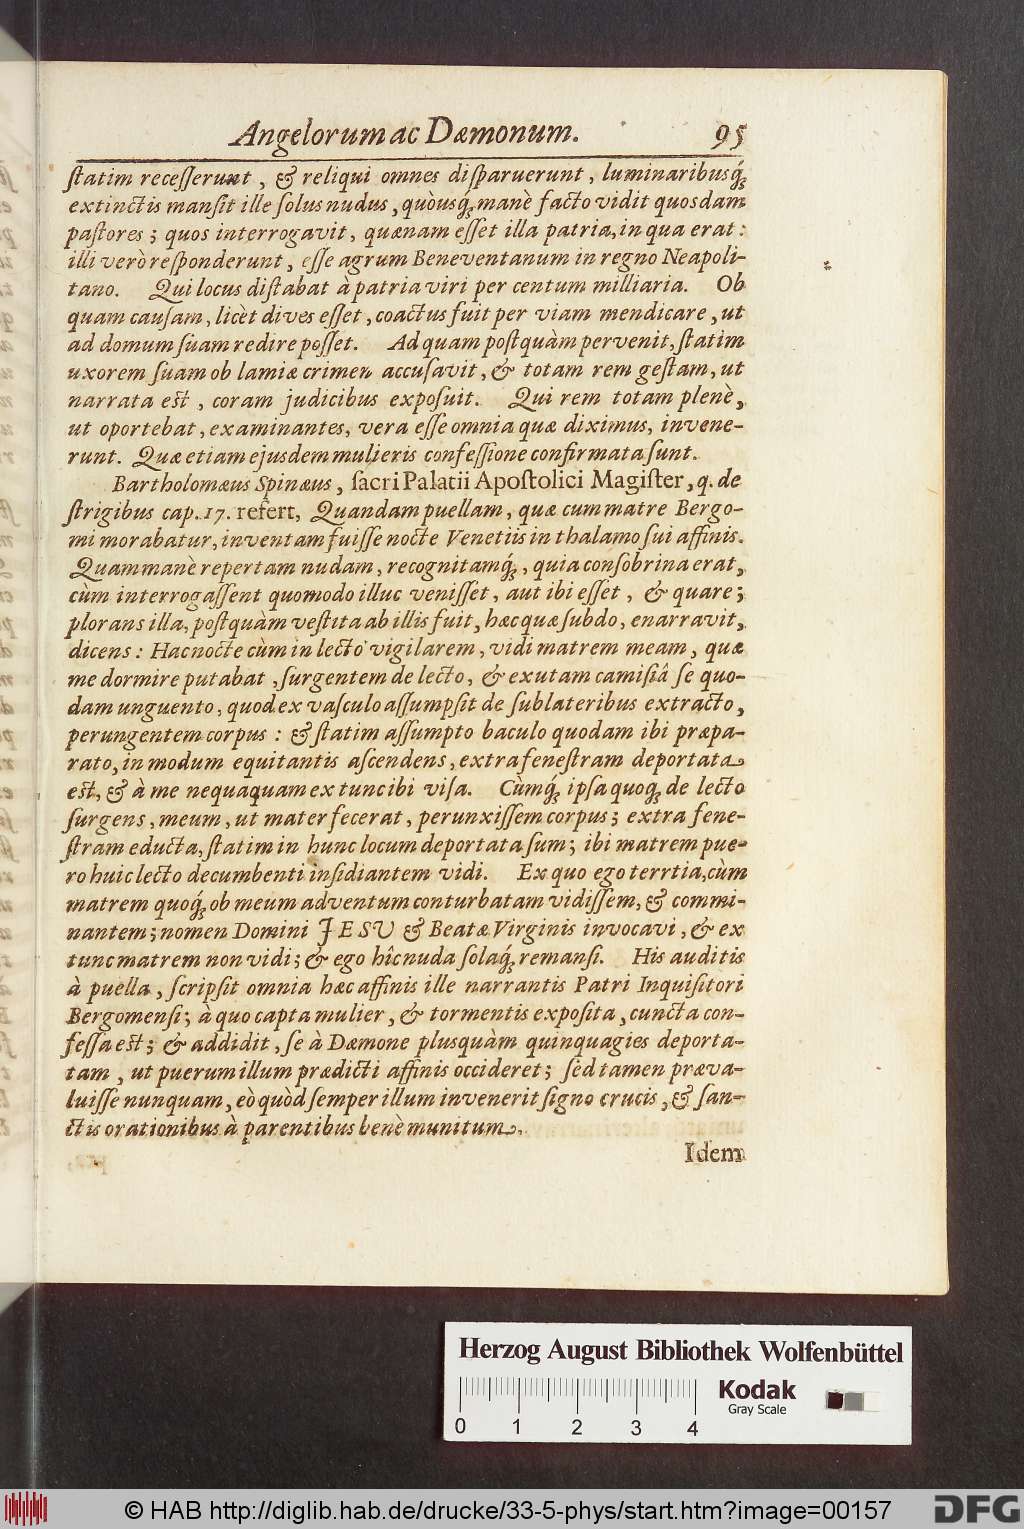 Angelorum ac Dæmonum. 95
ſtatim receſſerunt, & reliqui omnes diſparuerunt, luminaribusq́;
extinctis manſit ille ſolus nudus, quòusq́; manè facto vidit quosdam
paſtores; quos interrogavit, quænam eſſet illa patria, in qua erat:
illi verò reſponderunt, eſſe agrum Beneventanum in regno Neapoli-
tano. Qui locus diſtabat à patria viri per centum milliaria. Ob
quam cauſam, licèt dives eſſet, coactus fuit per viam mendicare, ut
ad domum ſuam redire poſſet. Ad quam poſtquàm pervenit, ſtatim
uxorem ſuam ob lamiæ crimen accuſavit, & totam rem geſtam, ut
narrata eſt, coram judicibus expoſuit. Qui rem totam plenè,
ut oportebat, examinantes, vera eſſe omnia quæ diximus, invene-
runt. Quæ etiam ejusdem mulieris confeſſione confirmata ſunt.
Bartholomæus Spinæus, ſacri Palatii Apoſtolici Magiſter, q. de
ſtrigibus cap. 17. refert, Quandam puellam, quæ cum matre Bergo-
mi morabatur, inventam fuiſſe nocte Venetiis in thalamo ſui affinis.
Quam manè repertam nudam, recognitamq́;, quia conſobrina erat,
cùm interrogaſſent quomodo illuc veniſſet, aut ibi eſſet, & quare;
plorans illa, poſtquàm veſtita ab illis fuit, hæc quæ ſubdo, enarravit,
dicens: Hac nocte cùm in lecto vigilarem, vidi matrem meam, quæ
me dormire putabat, ſurgentem de lecto, & exutam camiſiâ ſe quo-
dam unguento, quod ex vaſculo aſſumpſit de ſublateribus extracto,
perungentem corpus: & ſtatim aſſumpto baculo quodam ibi præpa-
rato, in modum equitantis aſcendens, extra feneſtram deportata
eſt, & à me nequaquam ex tunc ibi viſa. Cùmq́; ipſa quoq́; de lecto
ſurgens, meum, ut mater fecerat, perunxiſſem corpus; extra fene-
ſtram educta, ſtatim in hunc locum deportata ſum; ibi matrem pue-
ro huic lecto decumbenti inſidiantem vidi. Ex quo ego terrtia, cùm
matrem quoq́; ob meum adventum conturbatam vidiſſem, & commi-
nantem; nomen Domini JESU & Beatæ Virginis invocavi, & ex
tunc matrem non vidi; & ego hîc nuda ſolaq́; remanſi. His auditis
à puella, ſcripſit omnia hæc affinis ille narrantis Patri Inquiſitori
Bergomenſi; à quo capta mulier, & tormentis expoſita, cuncta con-
feſſa eſt; & addidit, ſe à Dæmone plusquàm quinquagies deporta-
tam, ut puerum illum prædicti affinis occideret; ſed tamen præva-
luiſſe nunquam, eò quòd ſemper illum invenerit ſigno crucis, & ſan-
ctis orationibus à parentibus benè munitum.
Idem
Herzog August Bibliothek Wolfenbüttel
Kodak
Gray Scale
0 1 2 3 4
© HAB http://diglib.hab.de/drucke/33-5-phys/start.htm?image=00157
DFG